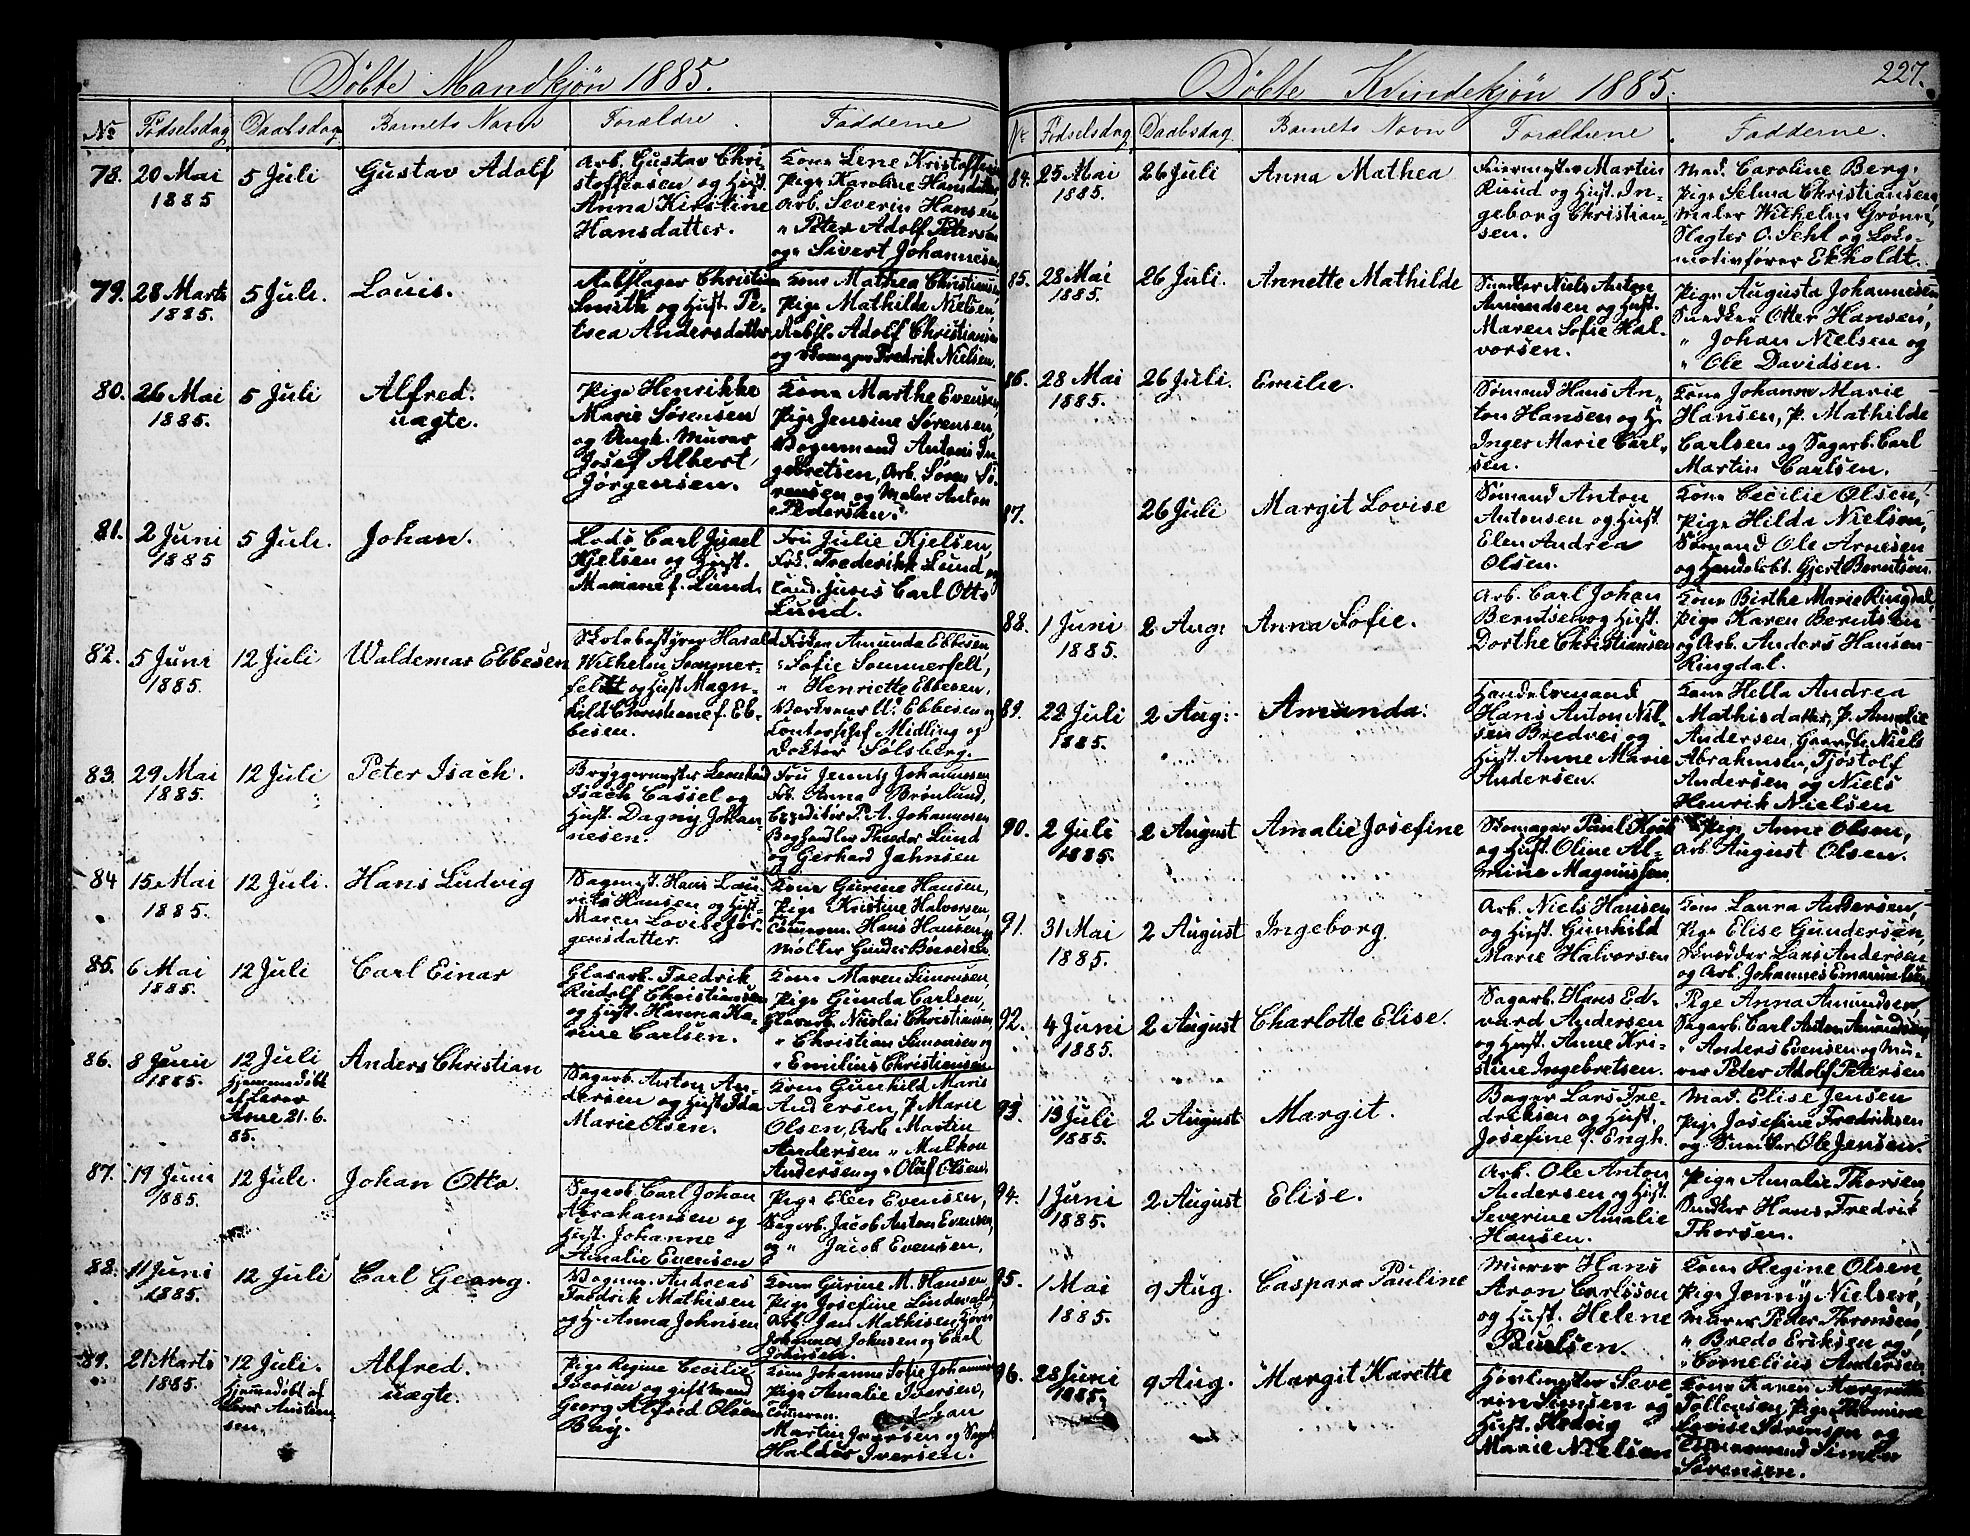 Døbte Mandkjøn 1885.
No Fødselsdag Daabsdag Barnets Navn Forældre Fadderne
78. 20 Mai 1885 5 Juli Gustav Adolf
Arb. Gustav Chri-
stoffersen og Hust.
Anna Kirstine
Hansdatter.
Kone Lene
Pige Karoline Hansdatter
Arb. Severin Hansen,
" Peter Adolf Petersen
og Sivert Johannesen
79. 28 Marts 1885. 5 Juli. Louis.
Christian
Smith og Hust. Pe-
trea Andersdatter
Kone Mathea Christiansen
Pige Mathilde Nielsen,
Adolf Christiansen
og Skomager Fredrik Nielsen.
80. 26 Mai 1885. 5 Juli Alfred.
uægte.
Pige Henrikke
Marie Sørensen
og Ungk. Murer
Josef Albert
Jørgensen.
Kone Marthe Evensen,
Pige Jensine Sørensen,
Vognmand Antoni In-
gebretsen, Arb. Søren Sø-
rensen og Maler Anton
Pedersen.
81. 2 Juni 1885 5 Juli. Johan.
Lods Carl Israel
Kjelsen og Hust.
Mariane f. Lund.
Fru Julie Kjelsen,
Frk. Frederikk Lund og
Cand. juris Carl Otto
Lund.
82. 5 Juni 1885. 12 Juli Waldemar Ebbesen
Skolebestyrer Harald
Wilhelm Sommer-
feldt og Hust Magn-
hild Christiane f. Eb-
besen.
Frøken Amunda Ebbesen
" Sofie Sommerfelt,
" Henriette Ebbesen.
Ebbesen og
Kontorchef Midling og
Doktor Solsberg.
83. 29 Mai 1885. 12 Juli Peter Isach.
Bryggermester Leonhard
Isach Cassel og
Hust. Dagny Johan-
nesen.
Fru Jenny Johannesen
Frk. Anna Brønlund,
Expeditør P. A. Johannesen
Boghandler Theodor Lund
og Gerhard Jahnsen
84 15 Mai 1885. 12 Juli. Hans Ludvig
Sagmst. Hans Lau-
rits Hansen og Hust.
Maren Lovise Jør-
gensdatter.
Kone Gurine Hansen,
Pige Kristine Halvorsen,
Tømmerm. Hans Hansen og
Møller Gunder Børresen.
85. 6 Mai 1885. 12 Juli Carl Einar
Glasarb. Fredrik
Rudolf Christiansen
og Hust. Hanna Ka-
rine Carlsen.
Kone Maren Simonsen,
Pige Gunda Carlsen,
Glasarb. Nicolai Christiansen
" Christian Simonsen og
" Emilius Christiansen
86. 8 Juni 1885. 12 Juli
Hjemmedøbt
af Lærer
21. 6.
85.
Anders Christian
Sagarb. Anton An-
dersen og Hust Ida
Marie Olsen.
Kone Gunhild Marie
Andersen, P. Marie
Olsen, Arb Martin
Andersen "
Andersen og " Olaf Olsen.
87. 19 Juni 1885. 12 Juli. Johan Otto.
Sagarb. Carl Johan
Abrahamsen og
Hust. Johanne
Amalie Evensen
Pige Elen Evensen,
Sagarb. Jacob Anton Evensen,
og " Jacob Evensen.
88. 11 Juni 1885. 12 Juli Carl Georg.
Vognm. Andreas
Fredrik Mathisen
og H. Anna Johnsen
Kone Gurine M. Hansen,
Pige Josefine Lindevald,
Arb. Jan Mathisen,
Johannes Johnsen og Carl
Johnsen.
89. 21 Marts 1885. 12 Juli.
Hjemmedøbt af
Alfred.
uægte.
Pige Regine Cecilie
Iversen og gift mand
Georg Alfred Olsen
Bay.
Kone Johanne Sofie Johannes
Pige Amalie Iversen,
Tømmerm. Johan
Martin Iversen og
Haldor Iversen.
Døbte Kvindekjøn 1885. 227.
No Fødselsdag Daabsdag Barnets Navn Forældrene Fadderne.
84. 25 Mai 1885. 26 Juli Anna Mathea
Martin
Ruud og Hust. In-
geborg Christian-
sen.
Mad. Caroline Berg.
Pige Selma Christiansen,
Maler Wilhelm Grønn,
Slagter O. Sehl og Loko-
motivfører Ekholdt.
85. 28 Mai 1885. 26 Juli. Annette Mathilde
Snedker Niels Anton
Amundsen og Hust.
Maren Sofie Hal-
vorsen.
Pige Augusta Johannesen
Snedker Otter Hansen,
" Johan Nielsen og
" Ole Davidsen.
86. 28 Mai 1885. 26 Juli. Emilie.
Sømand Hans An-
ton Hansen og H.
Inger Marie Carl-
sen.
Kone Johanne Marie
Hansen, P. Mathilde
Carlsen og Sagarb. Carl
Martin Carlsen.
87. 26 Juli Margit Lovise
Sømand Anton
Antonsen og Hust.
Elen Andrea
Olsen.
Kone Cecilie Olsen,
Pige Hilda Nielsen,
Sømand Ole Arnesen
og Handelsbt. Gjert Berntsen.
88. 1 Juni 1885. 2 Aug: Anna Sofie.
Arb. Carl Johan
Berntsen og Hust.
Dorthe Christiansen
Kone Birthe Marie Ringdal,
Pige Karen Berntsen
og Arb. Anders Hansen
Ringdal.
89. 22 Juli 1885. 2 Aug: Amanda.
Handelsmand
Hans Anton Nil-
sen Bredvei og
Hust. Anne Marie
Andersen.
Kone Hella Andrea
Mathisdatter, P. Amalie
Andersen, Niels
Abrahmsen, Tjøstolf
Andersen og Niels
Henrik Nielsen
90. 2 Juli 1885. 2 August Amalie Josefine
Skomager Paul
og Hust. Oline Al-
mine Magnussen
Pige Anne Olsen,
Arb. August Olsen.
91. 31 Mai 1885. 2 August Ingeborg
Arb. Niels Hansen
og Hust. Gunhild
Marie Halvorsen
Kone Laura Andersen,
Pige Elise Gundersen,
Skrædder Lars Andersen
og Arb. Johannes Emanuelsen
92. 4 Juni 1885. 2 August Charlotte Elise.
Sagarb. Hans Ed-
vard Andersen
og Hust. Anne Kri-
stine Ingebretsen.
Pige Anna Amundsen,
Sagarb. Carl Anton Amundsen
" Anders Evensen og Mu-
rer Peter Adolf Petersen
93. 13 Juli 1885. 2 August Margit.
Bager Lars Fre-
driksen og Hust.
Josefine f. Engh.
Mad. Elise Jensen
Pige Josefine Fredriksen
og Snedker Ole Jensen.
94. 1 Juni 1885. 2 August Elise.
Arb. Ole Anton
Andersen og Hust.
Severine Amalie
Hansen.
Pige Amalie Thorsen,
Snedker Hans Fredrik
Thorsen.
95. 1 Mai 1885. 9 Aug. Caspara Pauline
Murer Hans
Aron Carlsson
og Hust. Helene
Paulsen.
Kone Regine Olsen,
Pige Jenny Nielsen,
Murer Peder Thronsen,
" Bredo Eriksen og
" Cornelius Andersen
96. 28 Juni 1885. 9 Aug. Margit Karette
Høvlmester Seve-
rin Simsen og
Hust. Hedvig
Marie Nielsen
Kone Karen Margrethe
Tollefsen, Pige Thomine
Lovise Sørensen og
Tømmermand Simon
Sørensen.